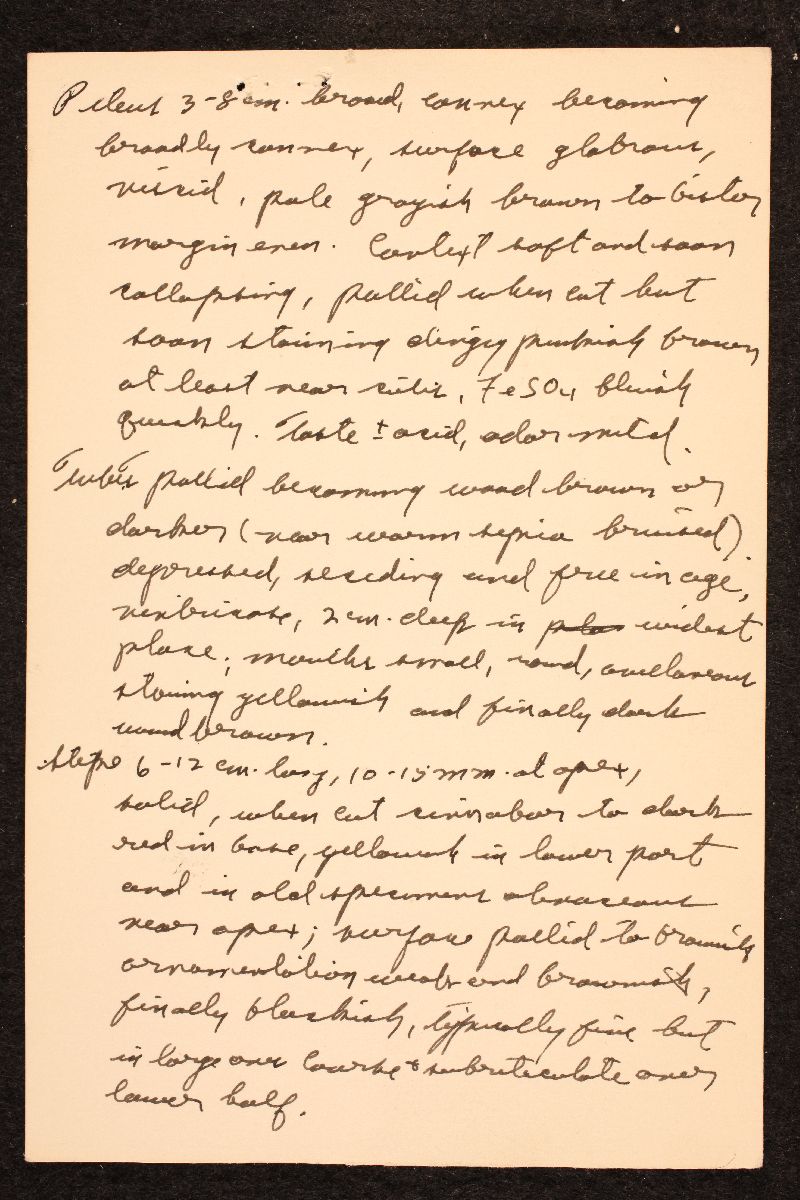 Pileus 3-8 cm. broad, convex becoming
broadly convex, surface glabrous,
viscid, pale grayish brown to bister
margin even. Context soft and soon
collapsing, pallid when cut but
soon staining dingy pinkish brown
at least near cutis, FeSO4 bluish
quickly. Taste ± acid, odor mild.
Tubes pallid becoming wood brown or
darker (near warm sepia bruised)
depressed, seceding and free in age,
ventricose, 2 cm. deep in widest
place; mouths small, round, avellaneous
staining yellowish and finally dark
wood brown.
Stipe 6-12 cm. long, 10-15 mm. at apex,
solid, when cut cinnabar to dark
red in base, yellowish in lower part
and in old specimens
near apex; surface pallid to brownish
ornamentation weak and brownish,
finally blackish, typically fine but
in large ones coarse & subreticulate over
lower half.